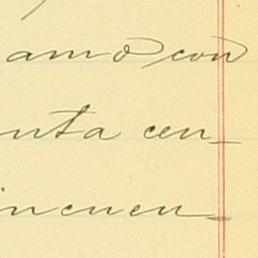 amó con
nta cen_
incuen_